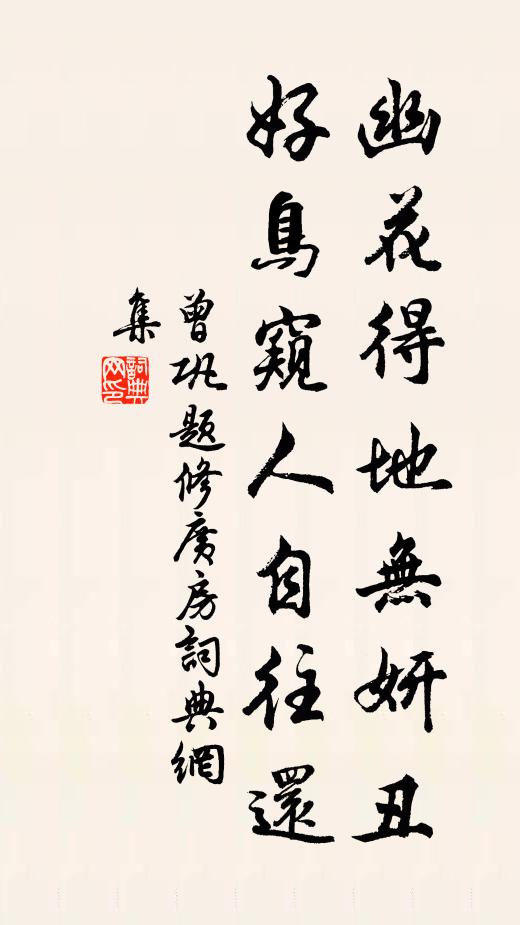 幽花得地無妍丑
好鳥窺人自往還
曾巩題修廣房詞典網
集
詞典网印